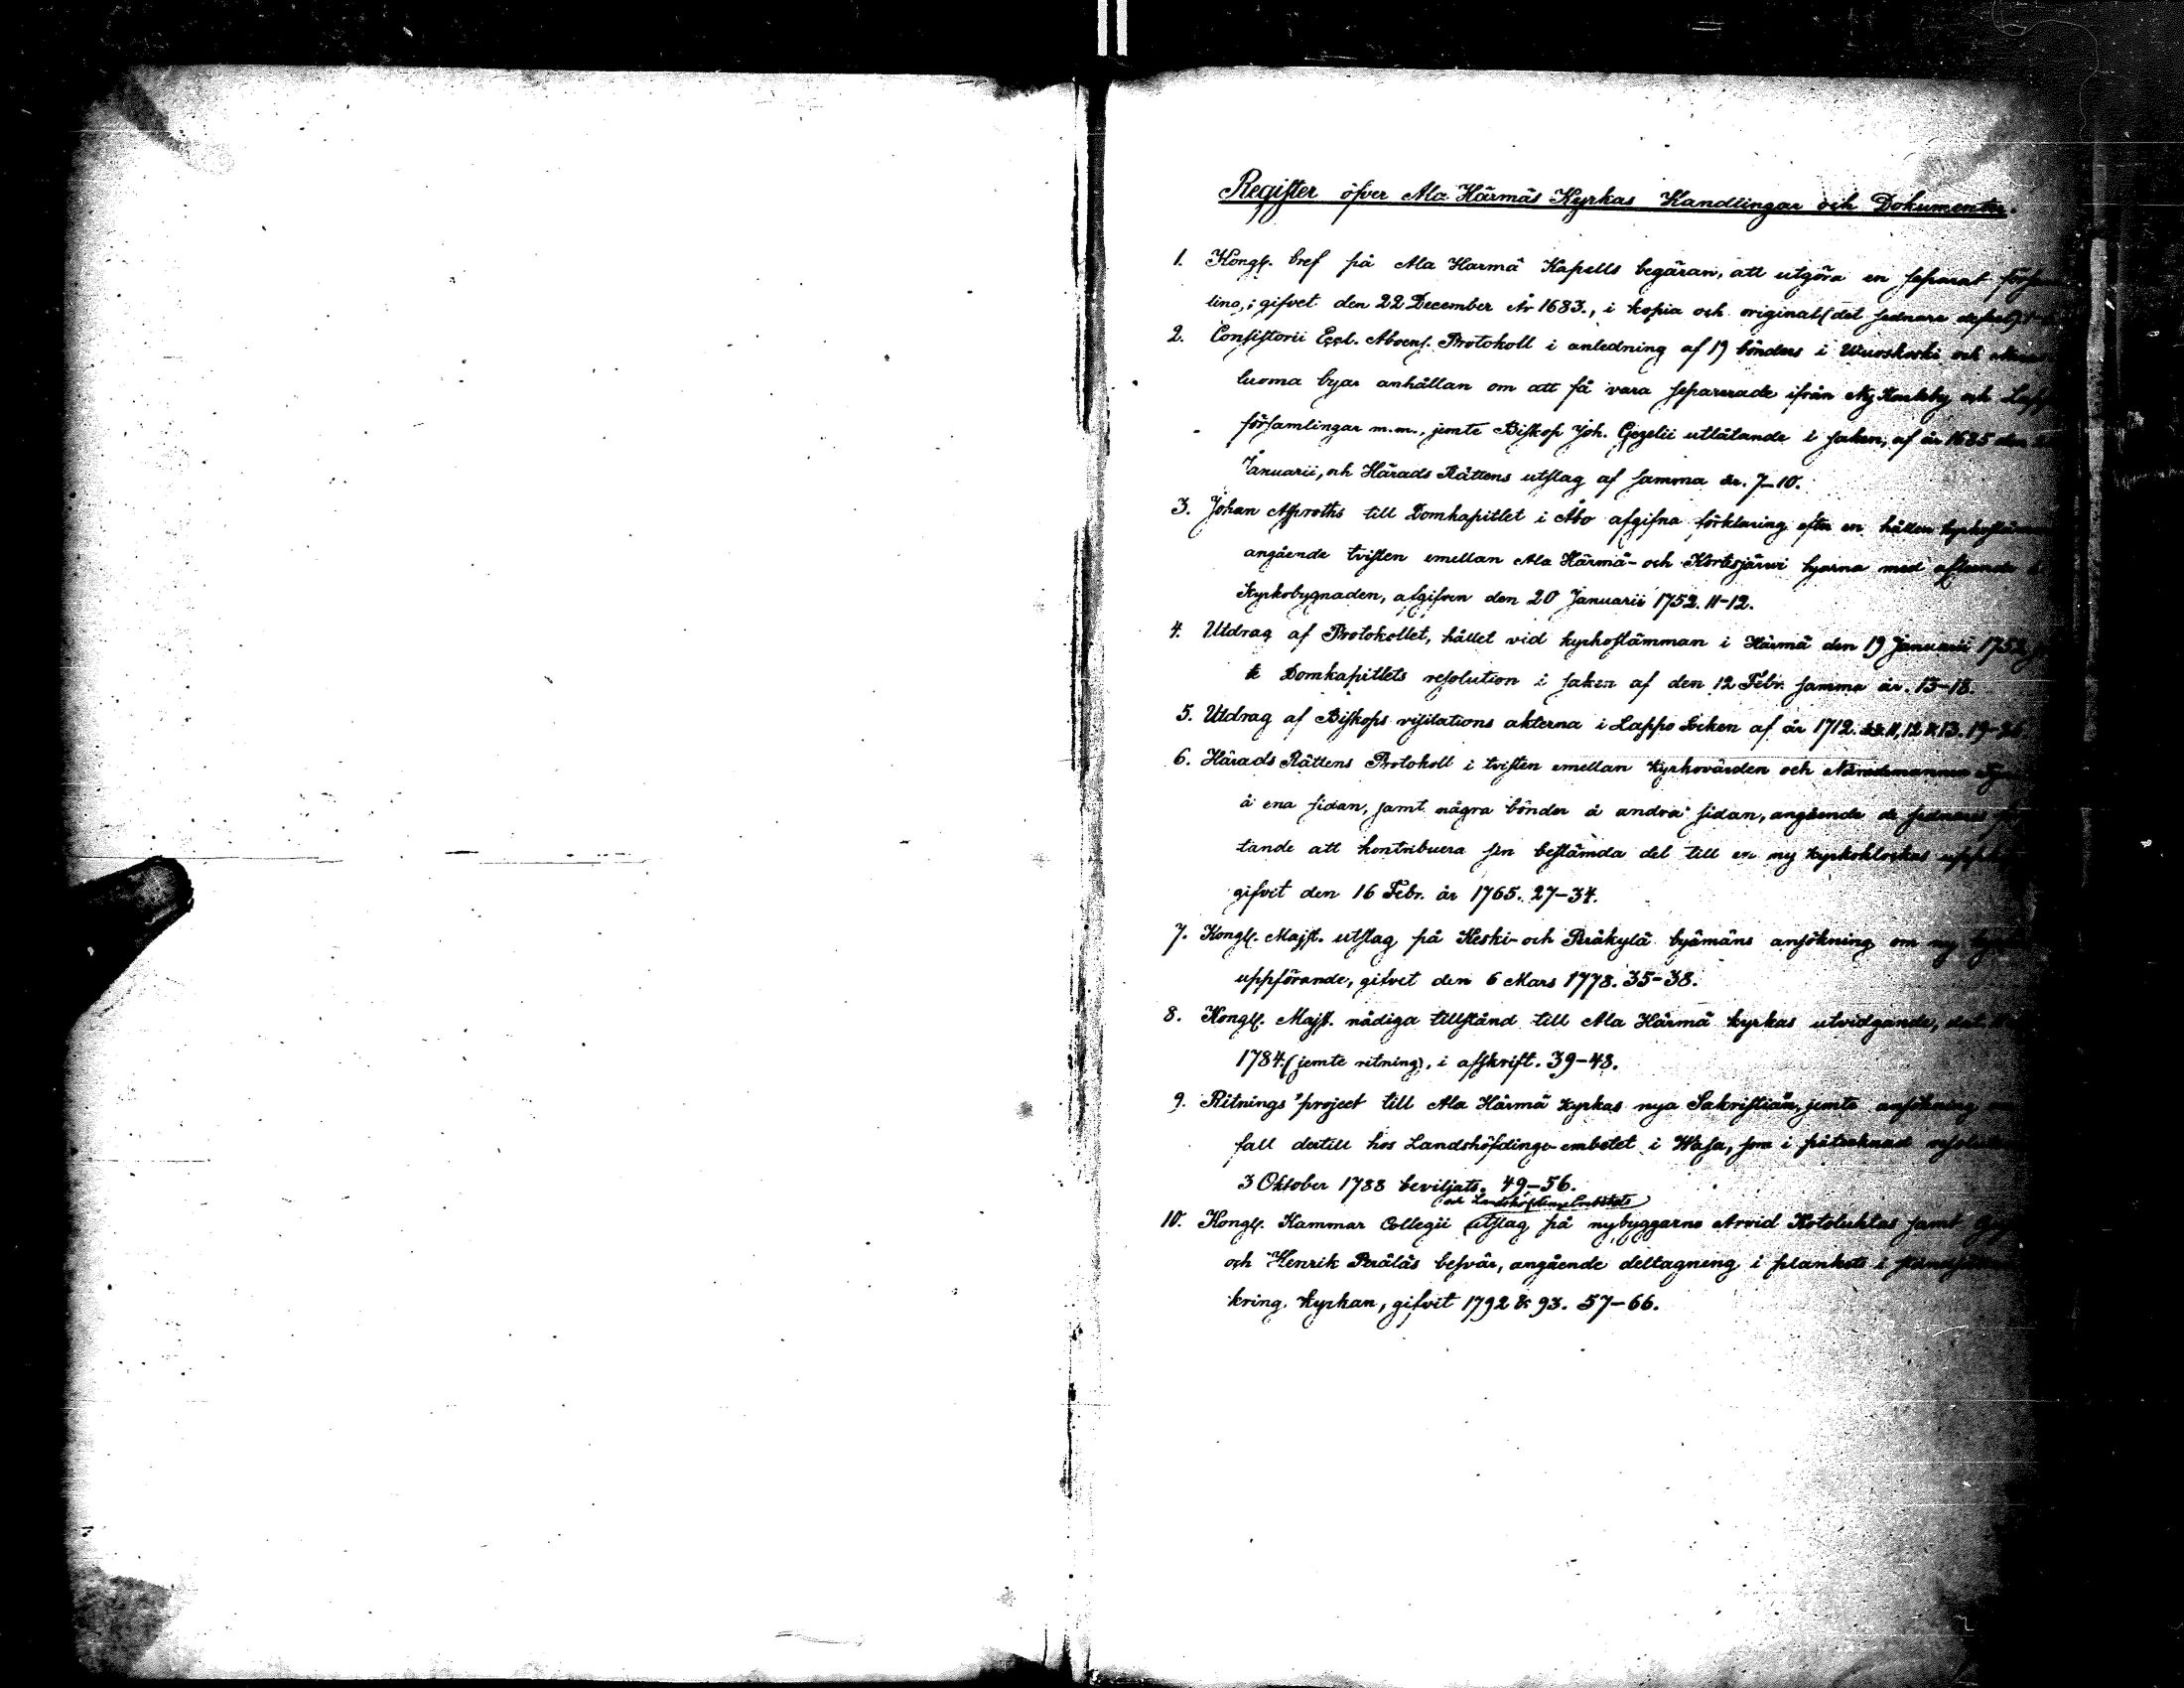 Register öfver Ala Härmäs Kyrkas Handlingar och Dokumenter.
1. Kongl. bref på Ala Harmä Kapells begäran, att utgöra en separat
ling, gifvet den 22 December År 1683., i kopia och original (det sednare
2. Consistorii Eccl. Aboens. Protokoll i anledning af 19 bönders i Wuoskoski och
luoma byar anhållan om att få vara separerade ifrån Ny Karleby och
församlingar m.m., jemte Biskop Joh. Gezelii utlåtande i saken, af år 1685 den
Januarii, och Härads Rättens utslag af samma år. 7-10.
3. Johan Asproths till Domkapitlet i Åbo afgifna förklaring efter en hållen
angående tvisten emellan Ala Härmä- och Kortesjärwi byarna med afseende å
Kyrkobygnaden, afgifven den 20 Januarii 1752. 11-12.
4. Utdrag af Protokollet, hållet vid kyrkostämman i Härmä den 19 Januarii 1752
te Domkapitlets resolution i saken af den 12 Febr. samma år. 13-18.
5. Utdrag af Biskops visitations akterna i Lappo Socken af år 1712. §§ 11, 12 & 13. 19-26
6. Härads Rättens Protokoll i tvisten emellan Kyrkovärden och Nämdemannen
å ena sidan, samt några bönder å andra sidan, angående de sednares
tande att kontribuera sin bestämda del till en ny kyrkoklockas
gifvit den 16 Febr. år 1765. 27-34.
7. Kongl. Majst. utslag på Keski- och Peräkylä byämäns ansökning om ny
uppförande, gifvet den 6 Mars 1778. 35-38.
8. Kongl. Majst. nådiga tillstånd till Ala Härmä kyrkas utvidgande,
1784. (jemte ritning), i afskrift. 39-48.
9. Ritnings project till Ala Härmä Kyrkas nya Sakristian, jemte ansökning
fall dertill hos Landshöfdinge-embetet i Wasa, som i påtecknad
3 Oktober 1788 beviljats. 49-56.
och Landshöfdinge Embetets
10. Kongl. Kammar Collegii utslag på nybyggarne Arvid Kotoluhtas samt
och Henrik Peräläs besvär, angående deltagning i plankets i
kring Kyrkan, gifvit 1792 & 93. 57-66.